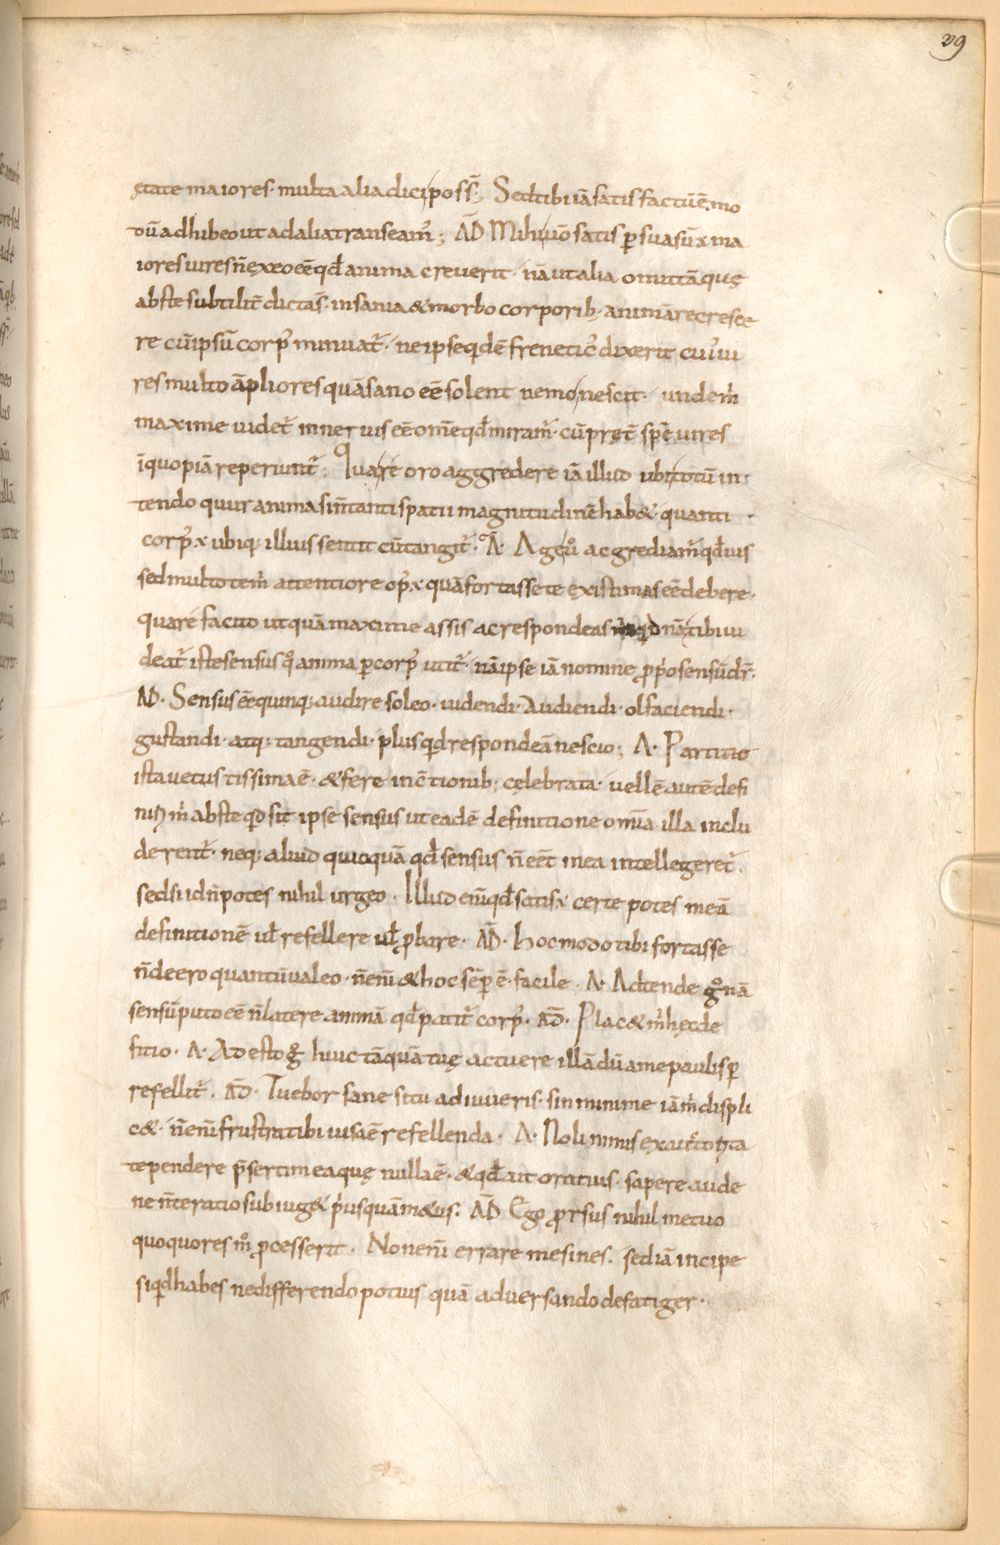 29
ętate maiores· multa alia dici poss̄; Sed tibi iā satis factū ē· mo
dū adhibeo ut ad alia transeam̄; AD̄ Mihi ūo satis p̲suasū x̄ ma
iores uires n̄ ex eo eē qđ anima creuerit· nā ut alia omittā quę
abs te subtilit̄ dicta s̄· insania & morbo corporib· animā recresce
re cū ipsū corp̓ minuat̄· ne ipse qidē frenetic̓ dixerit cui̓ ui
res multo āpliores quā sano eē solent nemo nescit· unde m̓
maxime uidet̄ in neruis eē om̄e qđ miram̓· cū pręt̄ spē uires
ī quopiā reperiunt̄· Quare oro aggredere iā illud ubi totū in·
tendo qu ur anima si n̄ tanti spatii magnitudinē hab& quanti
corp̓ x ubiq; illius sentit cū tangit̄· A· Age ů acgrediam̓ qđ uis
sed multo tem̓ attentiore op̓ x quā fortasse te existimas eē debere·
quare facito ut quā maxime assis ac respondeas qđnā tibi ui
deat̄ iste sensus qͦ anima p̲ corp̓ utit̄· nā ipse iā nomine p̲p̓o sensū dr̄·
AD· Sensus eē quinq; audire soleo· uidendi· Audiendi· olfaciendi·
gustandi· atq; tangendi· plus qđ respondeā nescio; A· Partitio
ista uetustissima ē· & fere in c̄tionib; celebrata· uellē autē defi
niri m̓ abs te qđ sit ipse sensus ut eadē definitione om̄ia illa inclu
derent̄· neq; aliud quicquā qđ sensus n̄ eēt in ea intellegeret̄·
sed si id n̄ potes nihil urgeo· Illud eni̅ qđ satis x̄ certe potes meā
definitionē ul̄ refellere ul̄ p̲bare· AD̄· hoc modo tibi fortasse
n̄ deero quantū ualeo· n̄ enī & hoc sēp̲ ē· facile· A· Adtende gͦ nā
sensū puto eē n̄ latere animā qđ patit̄ corp̓· AD̄· Plac& m̓ hęc de
fitio· A· Adesto gͦ huic tāquā tuę ac tuere illā dū a me paulisp̲
refellit̄· AD̄· Tuebor sane si tu adiuueris· sin minime iā m̓ displi
c&· n̄ enī frustra tibi uisa ē refellenda· A· Noli nimis ex auc̄to ri ta
te pendere p̄sertim ea quę nulla ē· & qđ ait oratius· sapere aude
ne n̄ te ratio subiug& p̓usquā m&us· AD̄ Ego p̲rsus nihil metuo
quoquo res mͦ p̲cesserit· Non enī errare me sines· sed iā incipe
si qđ habes ne differendo potius quā aduersando defatiger·